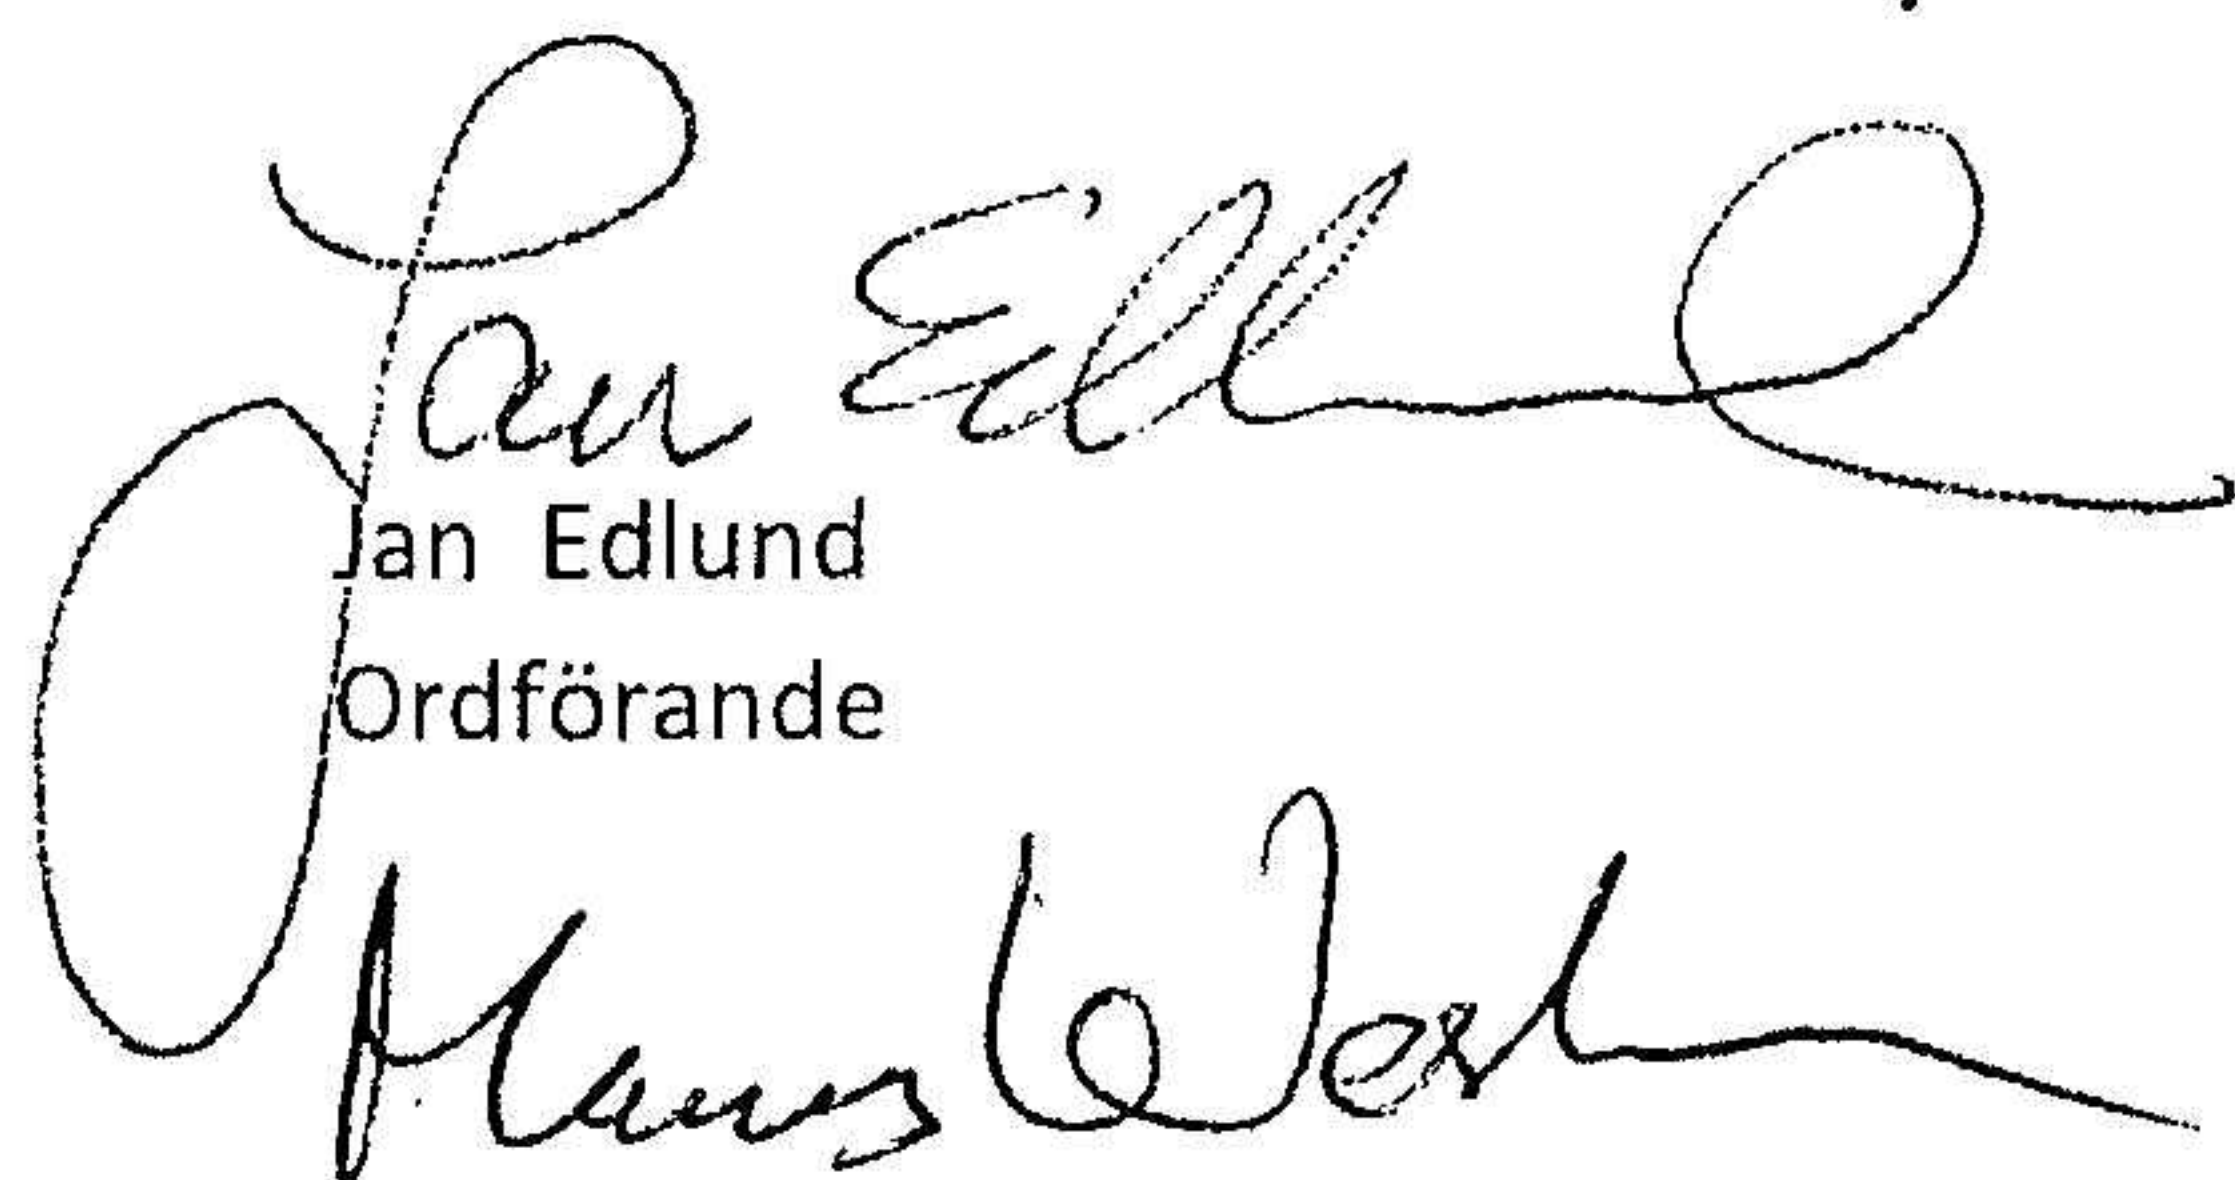 Jan Edlund
Jan Edlund
Ordförande
Hans